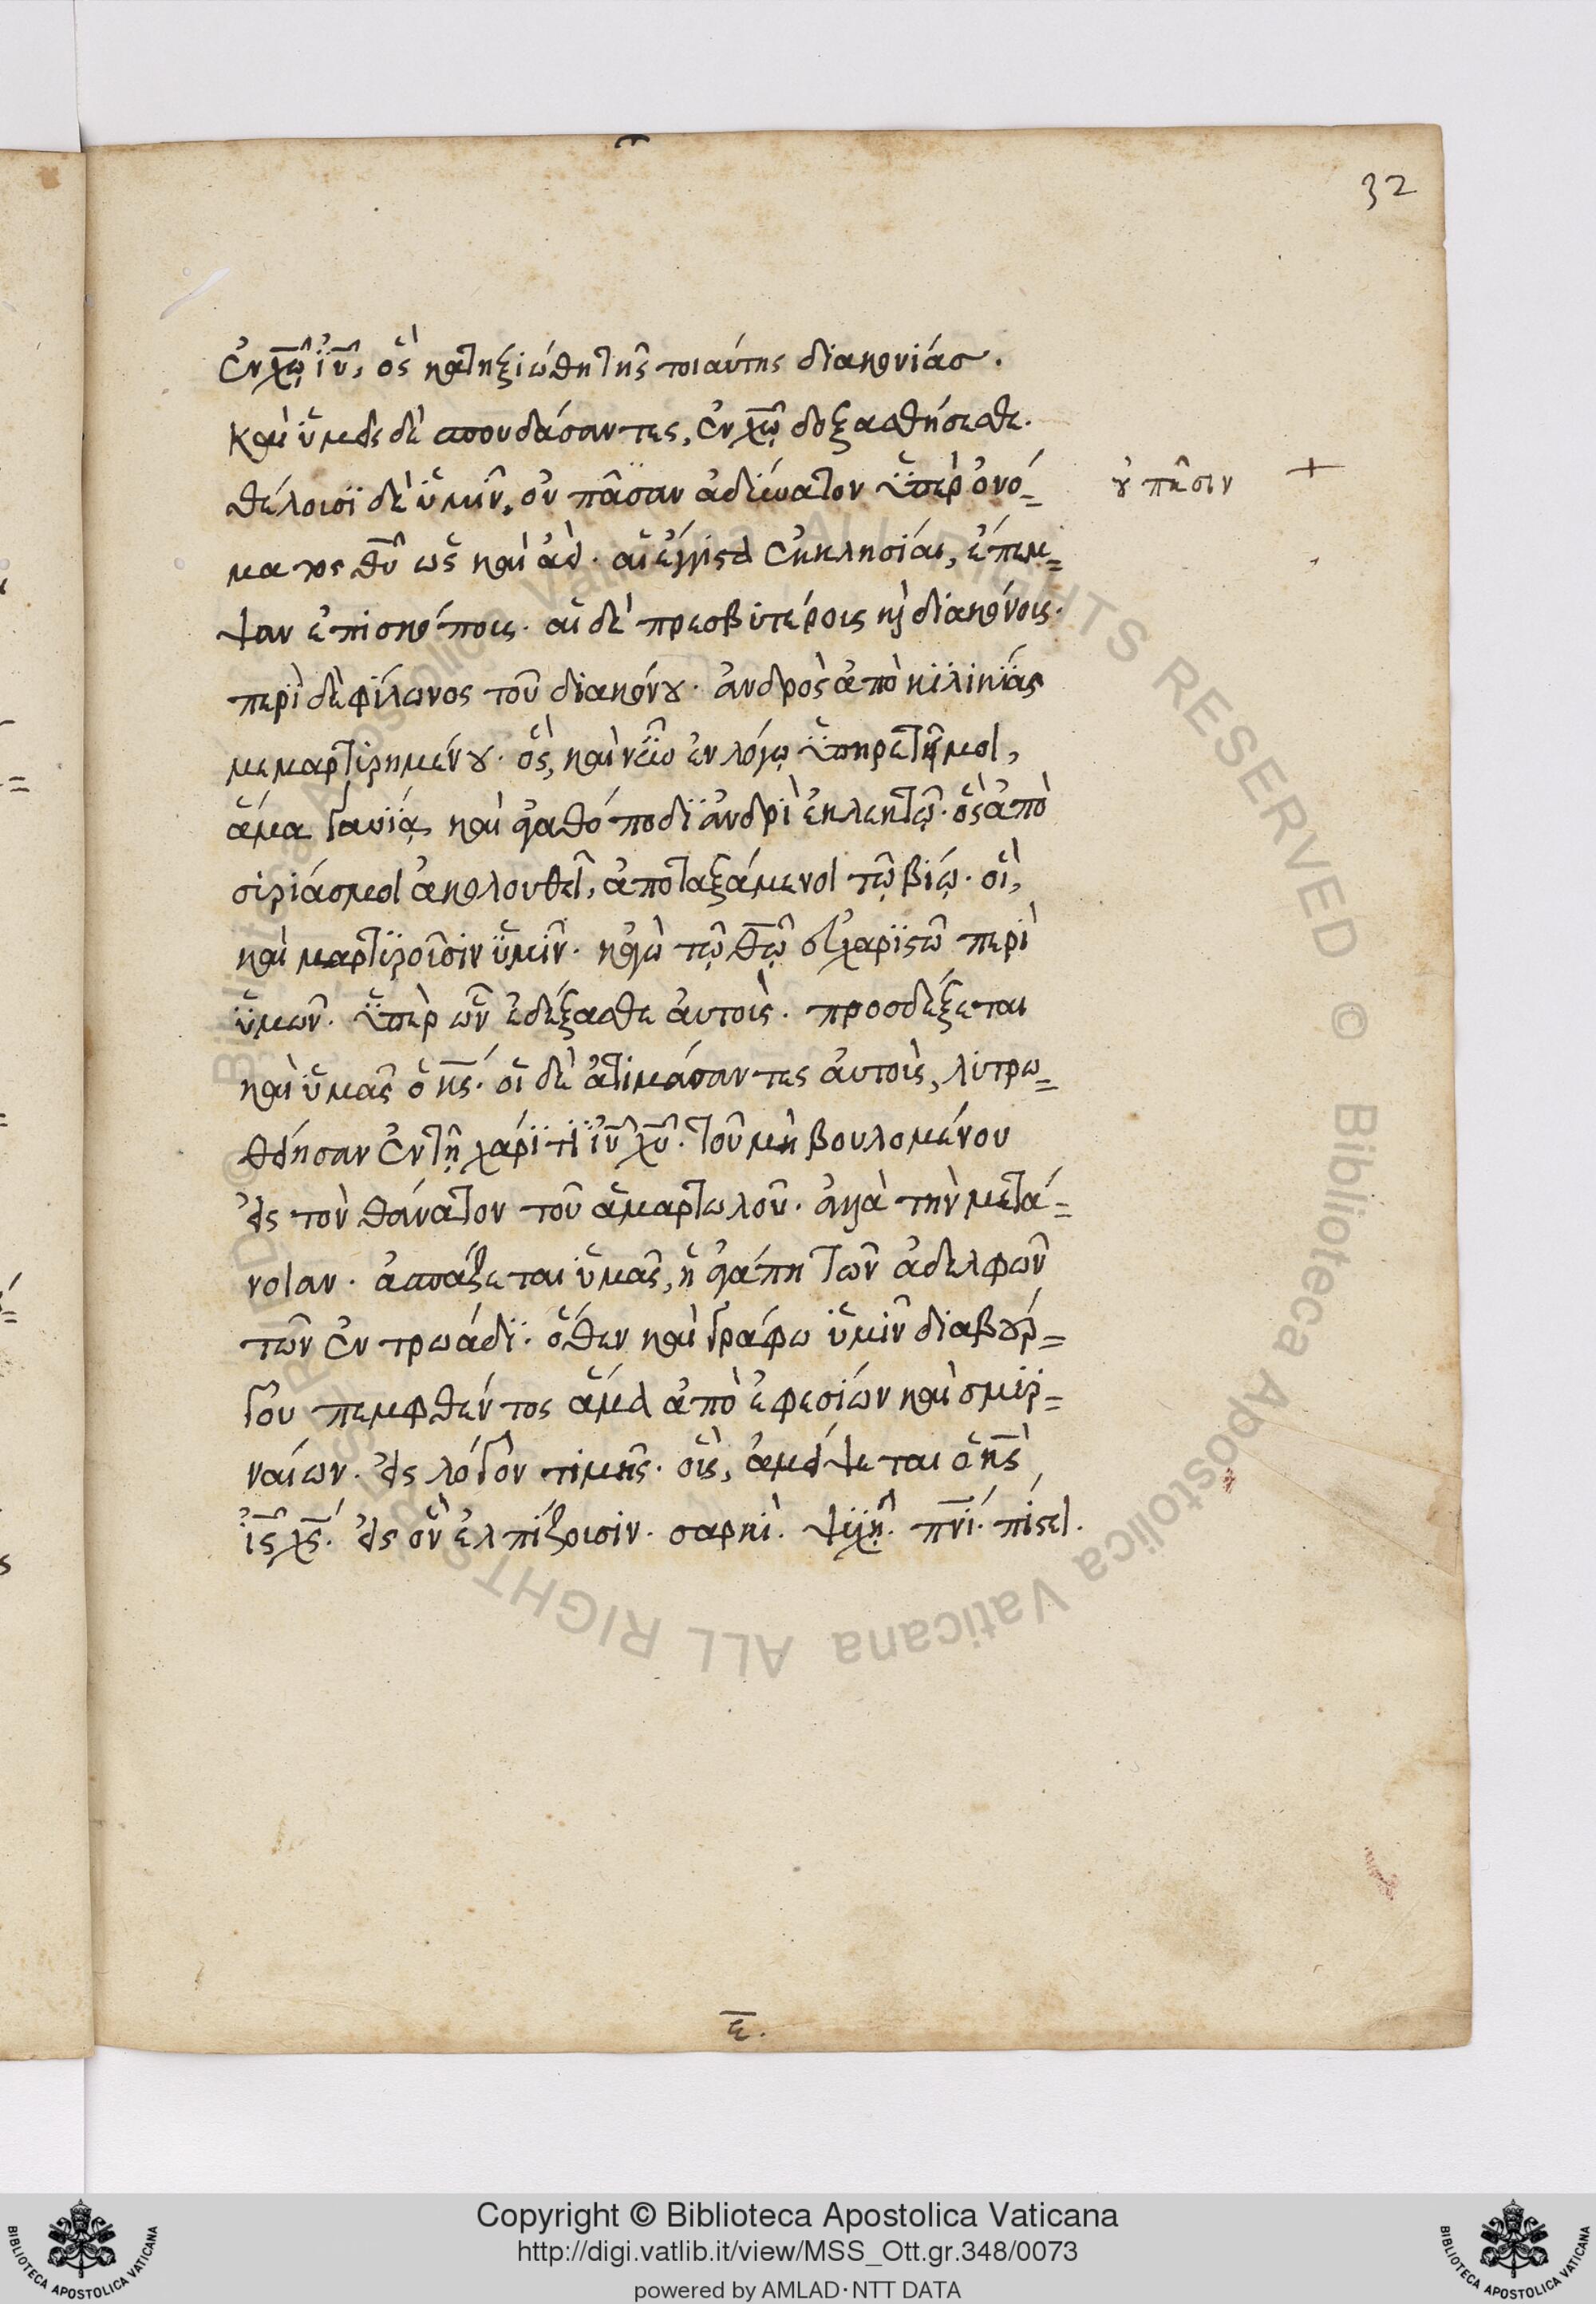 32
ἐν χ̅ω̅ ἰ̅υ̅, ὃς καταξιώθη τῆς τοιαύτης διακονίασ.
καὶ ὑμεῖς δὲ σπουδάσαντες, ἐν χ̅ω̅ δοξασθήσεσθε.
θέλουσϊ δὲ ὑμῖν, οὐ πᾶσαν ἀδύνατον ὑπὲρ ὀνό=
ματος θ̅υ̅ ὡς καὶ ἀεὶ. αἱ ἔγγιστα ἐκκλησίαι, ἔπεμ=
ψαν ἐπισκόποις. αἱ δὲ πρεσβυτέροις κ̀ διακόνοις.
περὶ δὲ φίλωνος τοῦ διακόνου. ἀνδρὸς ἀπὸ κιλικΐας
μεμαρτυρημένου. ὃς, καὶ νῦν ἐν λόγω ὑπηρετῆ μοι,
ἅμα γαυΐα, καὶ ἀγαθόποδϊ ἀνδρὶ ἐκλεκτῶ. ὃς ἀπὸ
συρίας μοι ἀκολουθεῖ, ἀποταξάμενοι τῷ βίω. οἳ,
καὶ μαρτυροῦσιν ὑμῖν. κἀγὼ τῷ θ̅ῷ̅ εὐχαριστῶ περὶ
ὑμῶν. ὑπὲρ ὧν ἐδέξασθε ἀυτοὺς. προσδέξεται
καὶ ὑμᾶς ὁ κ̅ς̅. οἱ δὲ ἀτιμάσαντες ἀυτοὺς, λυτρω=
θείησαν ἐν τῇ χάρϊτϊ ἰ̅υ̅ χ̅υ̅. τοῦ μὴ βουλομένου
εἰς τὸν θάνατον τοῦ ἁμαρτωλοῦ. ἀλλὰ τὴν μετά=
νοιαν. ἀσπάζεται ὑμᾶς, ἡ ἀγάπη τῶν ἀδελφῶν
τῶν ἐν τρωάδϊ. ὅθεν καὶ γράφω ὑμῖν διαβούρ=
γου πεμφθέντος ἅμα ἀπὸ ἐφεσίων καὶ σμυρ=
ναίων. εἰς λόγον τιμῆς. οὓς, ἀμείψεται ὁ κ̅ς̅
ἰ̅ς̅ χ̅ς̅. εἰς ὃν ἐλπίζουσιν. σαρκὶ. ψυχῇ. π̅ν̅ι̅. πίστει.
οὐ πᾶσιν +
ε̅.
Biblioteca Apostolica Vaticana ALL RIGHTS RESERVED ©
Copyright © Biblioteca Apostolica Vaticana
http://digi.vatlib.it/view/MSS_Ott.gr.348/0073
powered by AMLAD·NTT DATA
BIBLIOTECA APOSTOLICA VATICANA
BIBLIOTECA APOSTOLICA VATICANA